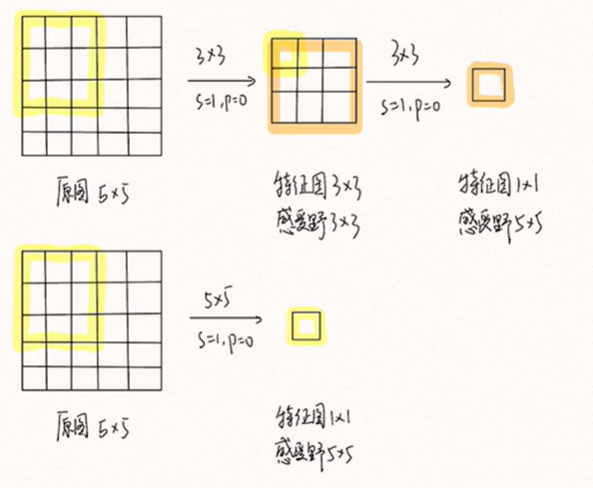 3×3
s=1,p=0
3×3
s=1,p=0
原图 5×5
特征图3×3
感受野3×3
特征图1×1
感受野5×5
5×5
s=1,p=0
原图 5×5
特征图1×1
感受野5×5